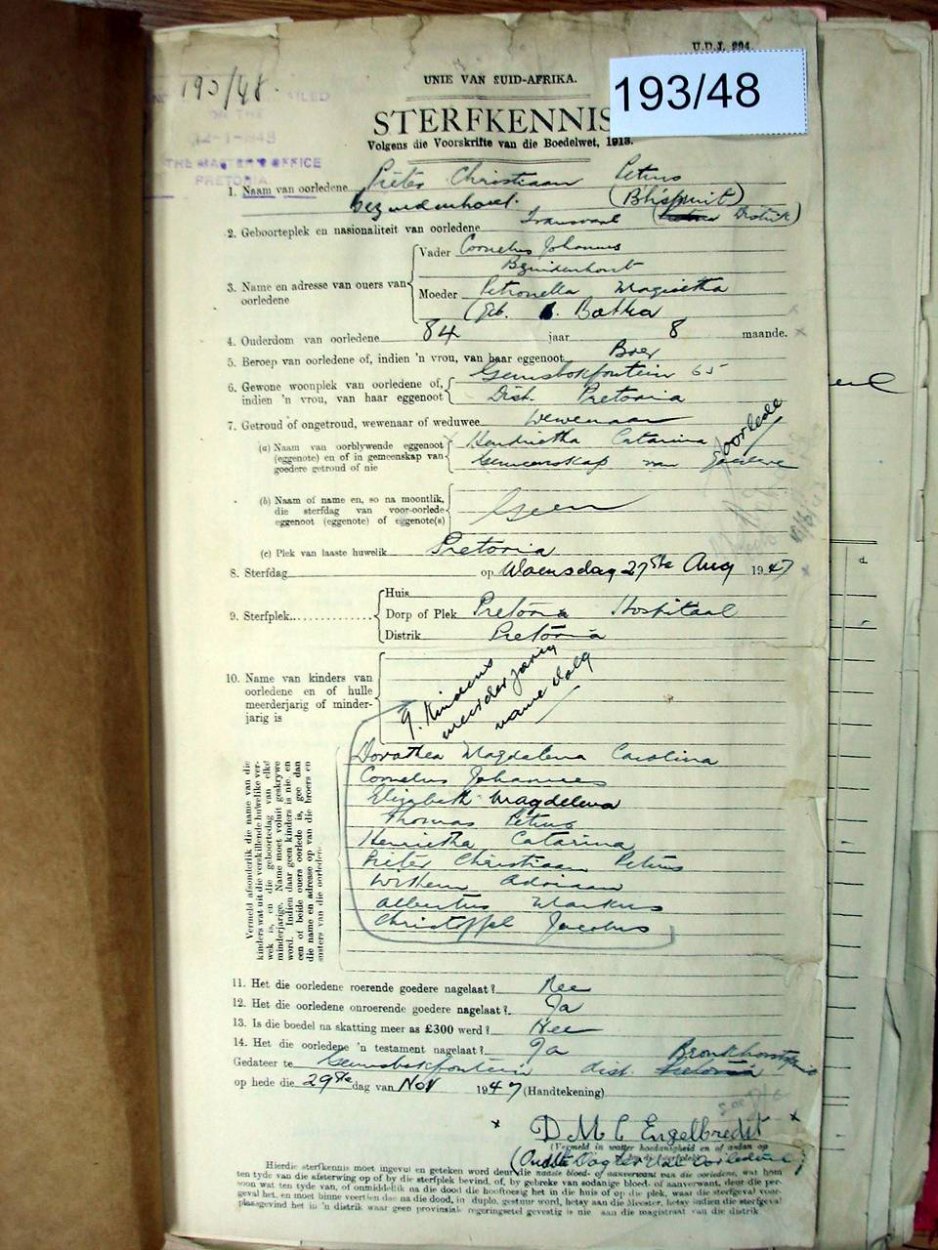 U.D.J. 294.
193/48
UNIE VAN SUID-AFRIKA.
193/48
STERFKENNIS
Volgens die Voorskrifte van die Boedelwet, 1913.
THE MASTER'S OFFICE
PRETORIA
1. Naam van oorledene Pieter Christiaan Petrus
Bezuidenhout. (
2. Geboorteplek en nasionaliteit van oorledene Transvaal Distrik)
Vader Cornelis Johannes
Bezuidenhout
3. Name en adresse van ouers van oorledene
Moeder Petronella Magrietha
(Geb. Botha
4. Ouderdom van oorledene 84 jaar 8 maande.
5. Beroep van oorledene of, indien 'n vrou, van haar eggenoot Boer
6. Gewone woonplek van oorledene of, indien 'n vrou, van haar eggenoot Gemsbokfontein 65
Dist. Pretoria
7. Getroud of ongetroud, wewenaar of weduwee Wewenaar
(a) Naam van oorblywende eggenoot Hendrietha Catarina oorlede
(eggenote) en of in gemeenskap van goedere getroud of nie Gemeenskap van Goedere
(b) Naam of name en, so na moontlik,
die sterfdag van voor-oorlede
eggenoot (eggenote) of eggenote(s) Geen
(c) Plek van laaste huwelik Pretoria
8. Sterfdag op Woensdag 27ste Aug 1947
Huis
9. Sterfplek Dorp of Plek Pretoria Hospitaal
Distrik Pretoria
10. Name van kinders van
oorledene en of hulle
meerderjarig of minder-
jarig is
9. Kinders
meerderjarig
name volg
Dorathea Magdalena Carolina
Cornelus Johannes
Elizabeth Magdelena
Thomas Petrus
Henrietha Catarina
Pieter Christiaan Petrus
Willem Adriaan
Albertus Markus
Christoffel Jacobus
Vermeld afsonderlik die name van die
kinders wat uit die verskillende huwelike ver-
wek is, en die geboortedag van elke
minderjarige. Name moet voluit geskrywe
word. Indien daar geen kinders is nie, en
een of beide ouers oorlede is, gee dan
die name en adresse op van die broers en
susters van die oorledene.
11. Het die oorledene roerende goedere nagelaat? Nee
12. Het die oorledene onroerende goedere nagelaat? Ja
13. Is die boedel na skatting meer as £300 werd? Nee
14. Het die oorledene 'n testament nagelaat? Ja
Gedateer te Gemsbokfontein dist. Pretoria Bronkhorstspruit
op hede die 29ste dag van Nov 1947 (Handtekening)
D M C Engelbrecht
(Vermeld in watter hoedanigheid en of anden op
(Oudste Dogter van Oorledene)
Hierdie sterfkennis moet ingevul en geteken word deur die naaste bloed- of aanverwant van die oorledene, wat hom
ten tyde van die afsterwing op of by die sterfplek bevind, of, by gebreke van sodanige bloed- of aanverwant, deur die per-
soon wat ten tyde van, of onmiddellik na die dood die hooftoesig het in die huis of op die plek, waar die sterfgeval voor-
geval het, en moet binne veertien dae na die dood, in duplo, gestuur word, hetsy aan die Meester, hetsy indien die sterfgeval
plaasgevind het in 'n distrik waar geen provinsiale regeringsetel gevestig is nie, aan die magistraat van die distrik